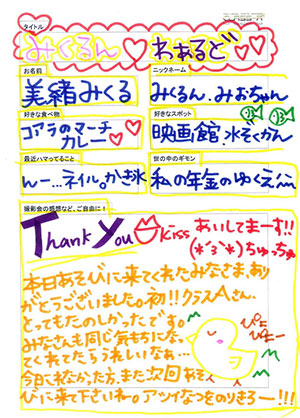 タイトル
みくるん♡わぁるど♡
お名前
ニックネーム
美緒みくる
みくるん.みおちゃん
好きな食べ物
好きなスポット
コアラのマーチ
カレー♡
映画館.水ぞくかん
最近ハマってること
世の中のギモン
んー…ネイル。かき氷
私の年金のゆくえ
撮影会の感想など、ご自由に!
Thank You kiss あいしてまーす!!
(*´3`*)ちゅっちゅ
本日あそびに来てくれたみなさま、あり
がとうございました。初!!クラスAさん、
とってもたのしかったです。
みなさんも同じ気もちになっ
てくれてたらうれしいなぁ…
今日来れなかった方、また次回あそ
びに来て下さいね。アツイなつをのりきろー!!!
ぴよ
ぴよー